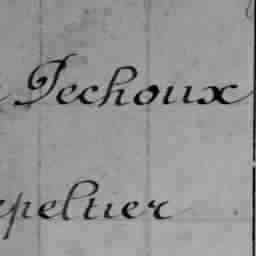 Pechoux
epeltier